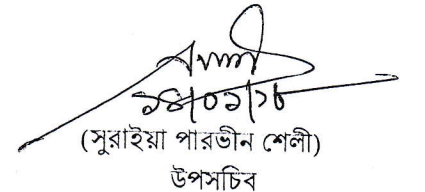 ১৪/০১/১৮
(সুরাইয়া পারভীন শেলী)
উপসচিব